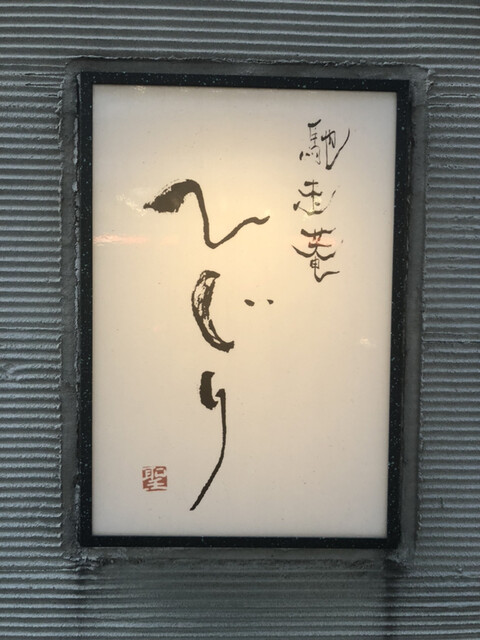 馳走菴
ひじり
聖